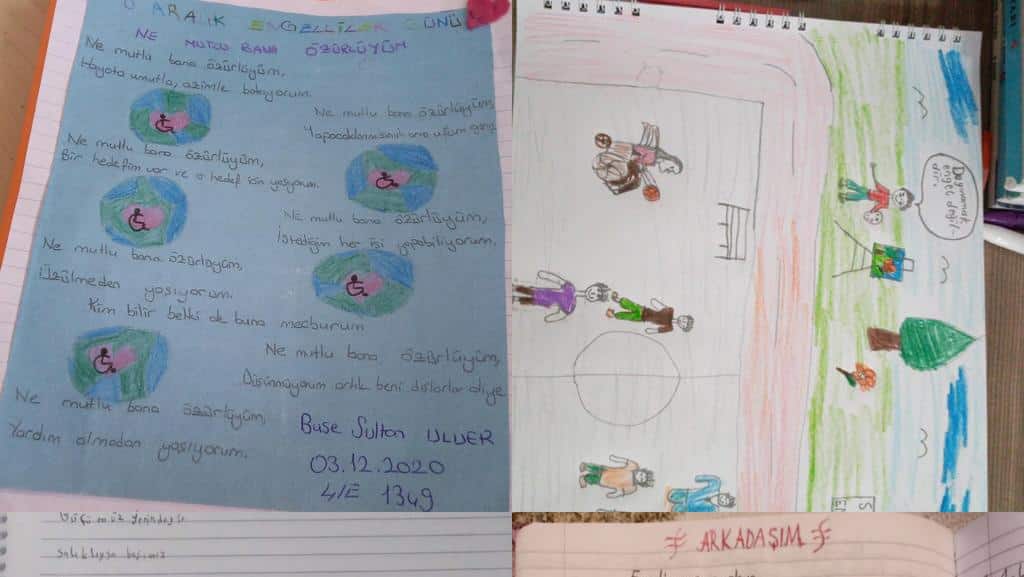 3 ARALIK ENGELLİLER GÜNÜ
NE MUTLU BANA ÖZÜRLÜYÜM
Ne mutlu bana özürlüyüm,
Hayata umutla, azimle bakıyorum.
Ne mutlu bana özürlüyüm,
Ne mutlu bana özürlüyüm,
Bir hedefim var ve o hedef için yaşıyorum.
Ne mutlu bana özürlüyüm,
İstediğim her işi yapabiliyorum.
Ne mutlu bana özürlüyüm,
Üzülmeden yaşıyorum.
Kim bilir belki de buna mecburum
Ne mutlu bana özürlüyüm,
Düşünmüyorum artık beni dışlarlar diye
Ne mutlu bana özürlüyüm,
Yardım almadan yaşıyorum.
Buse Sultan ULUER
03.12.2020
4/E 1349
engel değil-
dir.
ARKADAŞIM